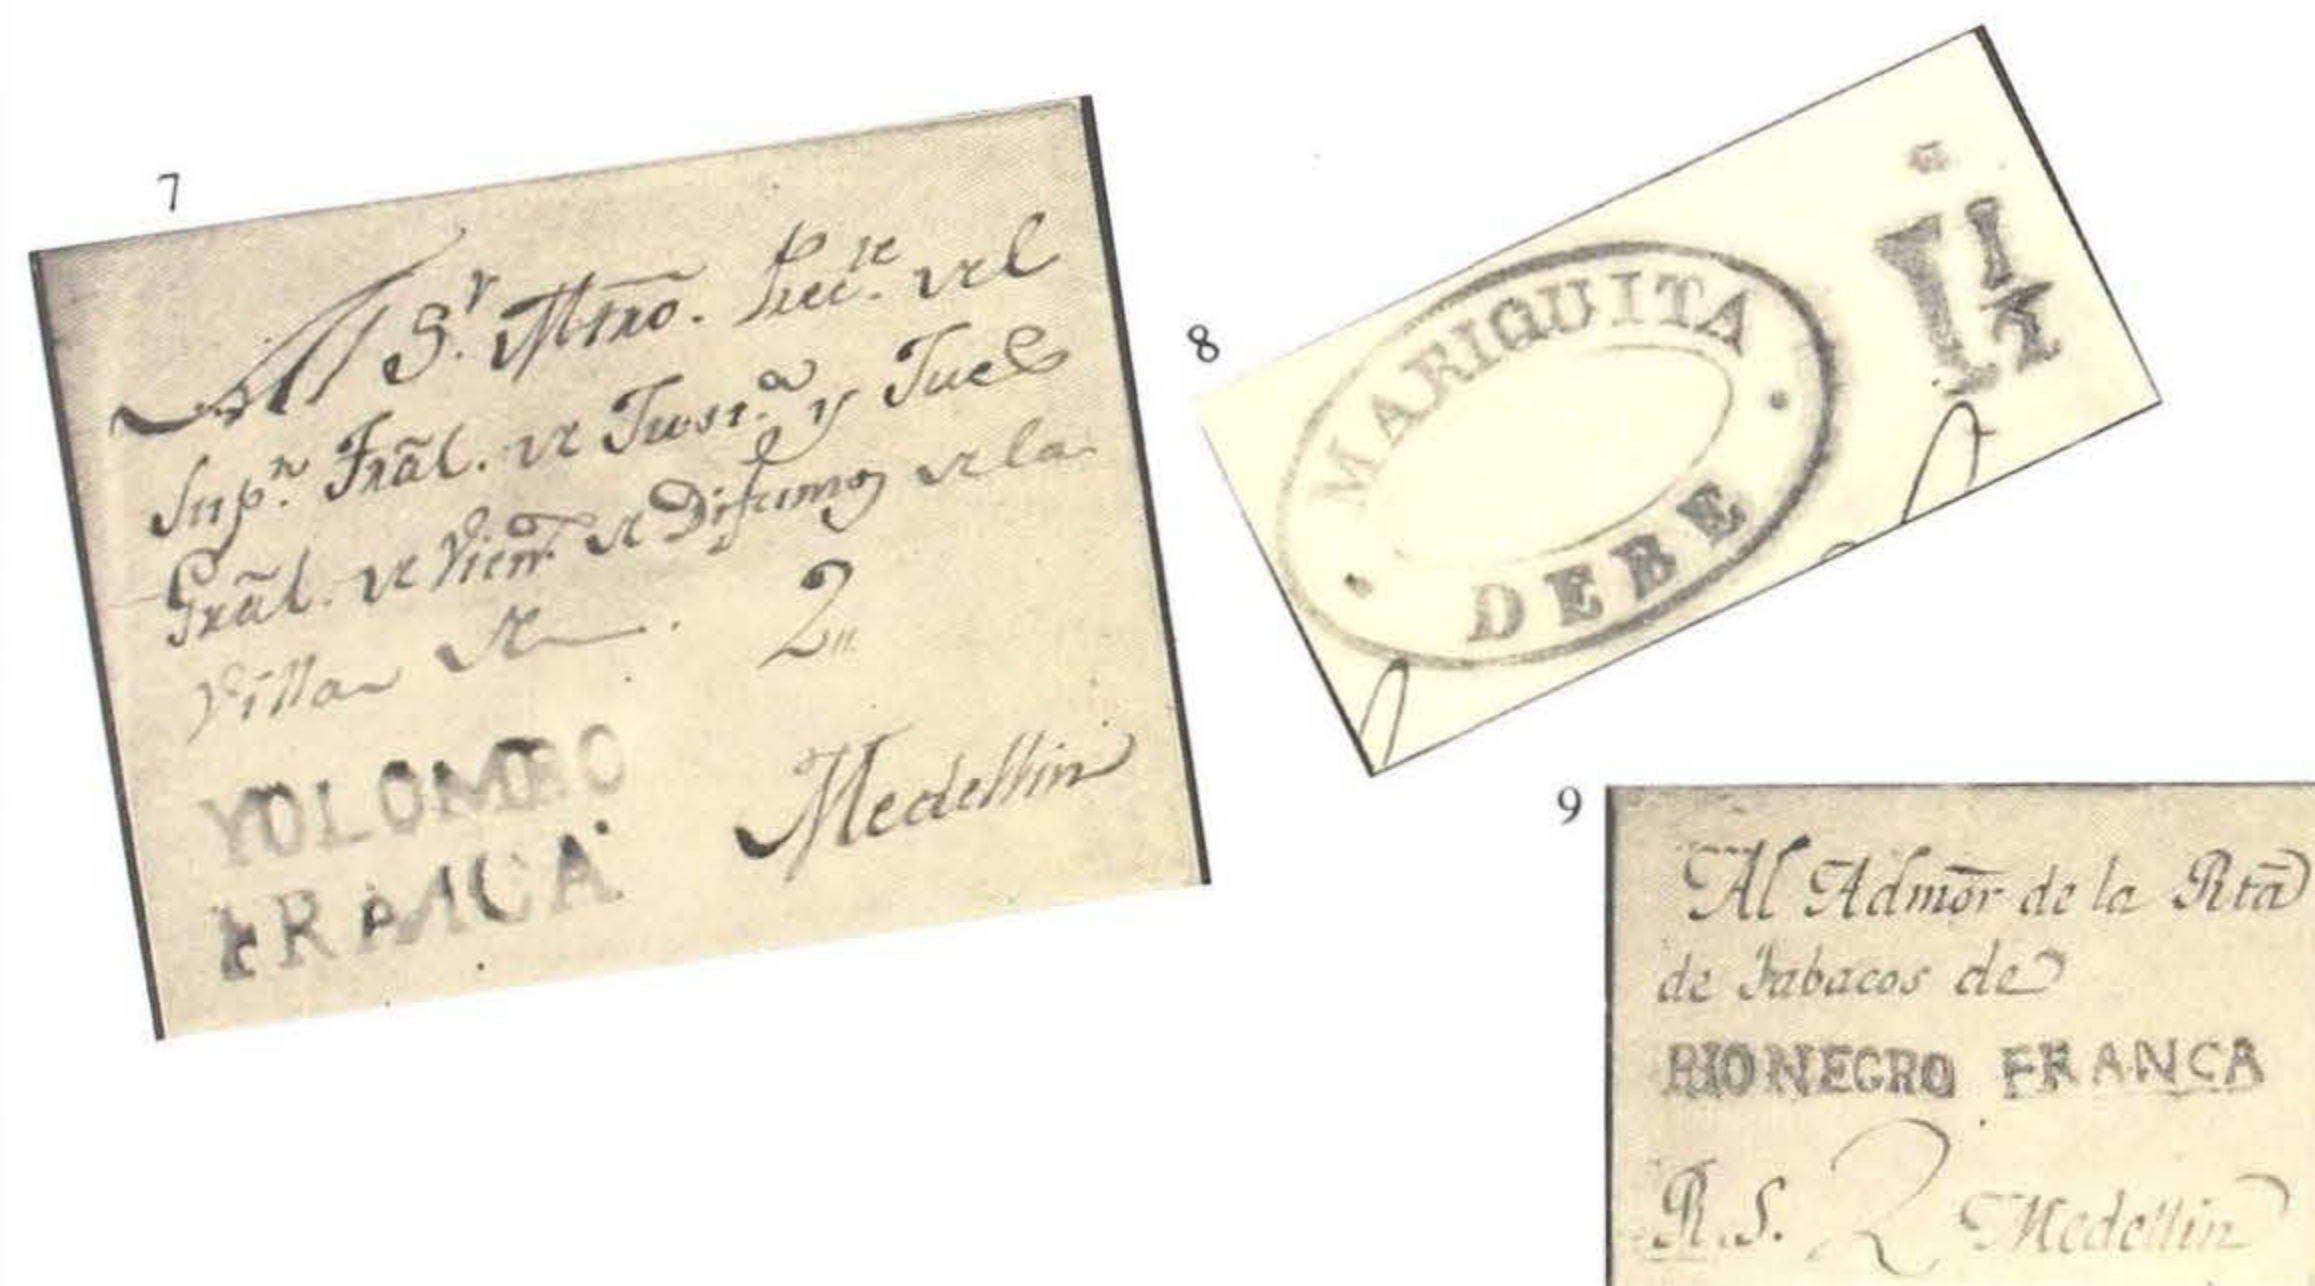 7
Al S.r Mtro.
Sup.n Gral. de Just.a y Juez
Gral. de Vien.s de Difunos de la
Villa de
2
YOLOMBO
FRANCA
Medellin
8
MARIQUITA
DEBE
1 1/2
9
Al Admor de la Rta
de Tabacos de
RIONEGRO FRANCA
R.S. 2 Medellin